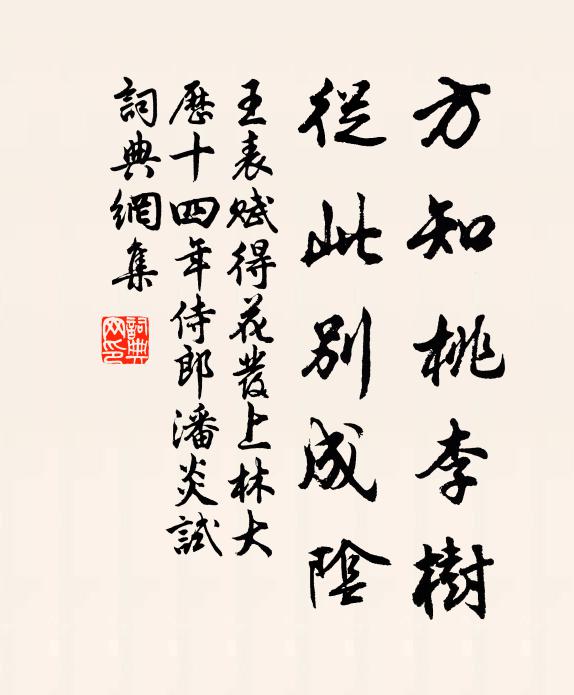 方知桃李樹
從此別成陰
王表賦得花發上林大
歷十四年侍郎潘炎試
詞典網集
詞典
网印